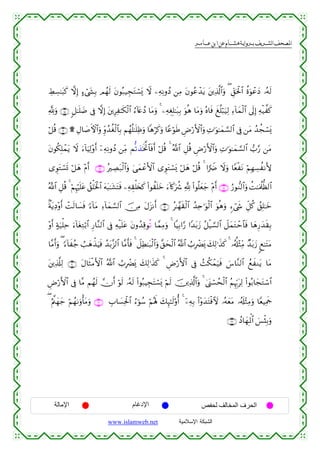 المصحف الشريف برواية هشام عن ابن عامر
لَهُۥ دَعْوَةُ ٱلْحَقِّ ۖ وَٱلَّذِينَ يَدْعُونَ مِن دُونِهِۦ لَا يَسْتَجِيبُونَ لَهُم بِشَىْءٍ إِلَّا كَبَـٰسِطِ
كَفَّيْهِ إِلَى ٱلْمَآءِ لِيَبْلُغَ فَاهُ وَمَا هُوَ بِبَـٰلِغِهِۦ ۚ وَمَا دُعَآءُ ٱلْكَـٰفِرِينَ إِلَّا فِى ضَلَـٰلٍ وَلِلَّهِ
يَسْجُدُ مَن فِى ٱلسَّمَـٰوَٰتِ وَٱلْأَرْضِ طَوْعًا وَكَرْهًا وَظِلَـٰلُهُم بِٱلْغُدُوِّ وَٱلْـَٔاصَالِ ۩ قُلْ
مَن رَّبُّ ٱلسَّمَـٰوَٰتِ وَٱلْأَرْضِ قُلِ ٱللَّهُ ۚ قُلْ أَفَٱتَّخَذتُّم مِّن دُونِهِۦٓ أَوْلِيَآءَ لَا يَمْلِكُونَ
لِأَنفُسِهِمْ نَفْعًا وَلَا ضَرًّا ۚ قُلْ هَلْ يَسْتَوِى ٱلْأَعْمَىٰ وَٱلْبَصِيرُ أَمْ هَلْ تَسْتَوِى
ٱلظُّلُمَـٰتُ وَٱلنُّورُ أَمْ جَعَلُوا۟ لِلَّهِ شُرَكَآءَ خَلَقُوا۟ كَخَلْقِهِۦ فَتَشَـٰبَهَ ٱلْخَلْقُ عَلَيْهِمْ ۚ قُلِ ٱللَّهُ
خَـٰلِقُ كُلِّ شَىْءٍ وَهُوَ ٱلْوَٰحِدُ ٱلْقَهَّـٰرُ أَنزَلَ مِنَ ٱلسَّمَآءِ مَآءً فَسَالَتْ أَوْدِيَةٌۢ
بِقَدَرِهَا فَٱحْتَمَلَ ٱلسَّيْلُ زَبَدًا رَّابِيًا ۚ وَمِمَّا تُوقِدُونَ عَلَيْهِ فِى ٱلنَّارِ ٱبْتِغَآءَ حِلْيَةٍ أَوْ
مَتَـٰعٍ زَبَدٌ مِّثْلُهُۥ ۚ كَذَٰلِكَ يَضْرِبُ ٱللَّهُ ٱلْحَقَّ وَٱلْبَـٰطِلَ ۚ فَأَمَّا ٱلزَّبَدُ فَيَذْهَبُ جُفَآءً ۖ وَأَمَّا
مَا يَنفَعُ ٱلنَّاسَ فَيَمْكُثُ فِى ٱلْأَرْضِ ۚ كَذَٰلِكَ يَضْرِبُ ٱللَّهُ ٱلْأَمْثَالَ لِلَّذِينَ
ٱسْتَجَابُوا۟ لِرَبِّهِمُ ٱلْحُسْنَىٰ ۚ وَٱلَّذِينَ لَمْ يَسْتَجِيبُوا۟ لَهُۥ لَوْ أَنَّ لَهُم مَّا فِى ٱلْأَرْضِ
جَمِيعًا وَمِثْلَهُۥ مَعَهُۥ لَٱفْتَدَوْا۟ بِهِۦٓ ۚ أُو۟لَـٰٓئِكَ لَهُمْ سُوٓءُ ٱلْحِسَابِ وَمَأْوَىٰهُمْ جَهَنَّمُ ۖ
وَبِئْسَ ٱلْمِهَادُ
الحرف المخالف لحفص الإدغام الإمالة
الشبكة الإسلامية www.islamweb.net